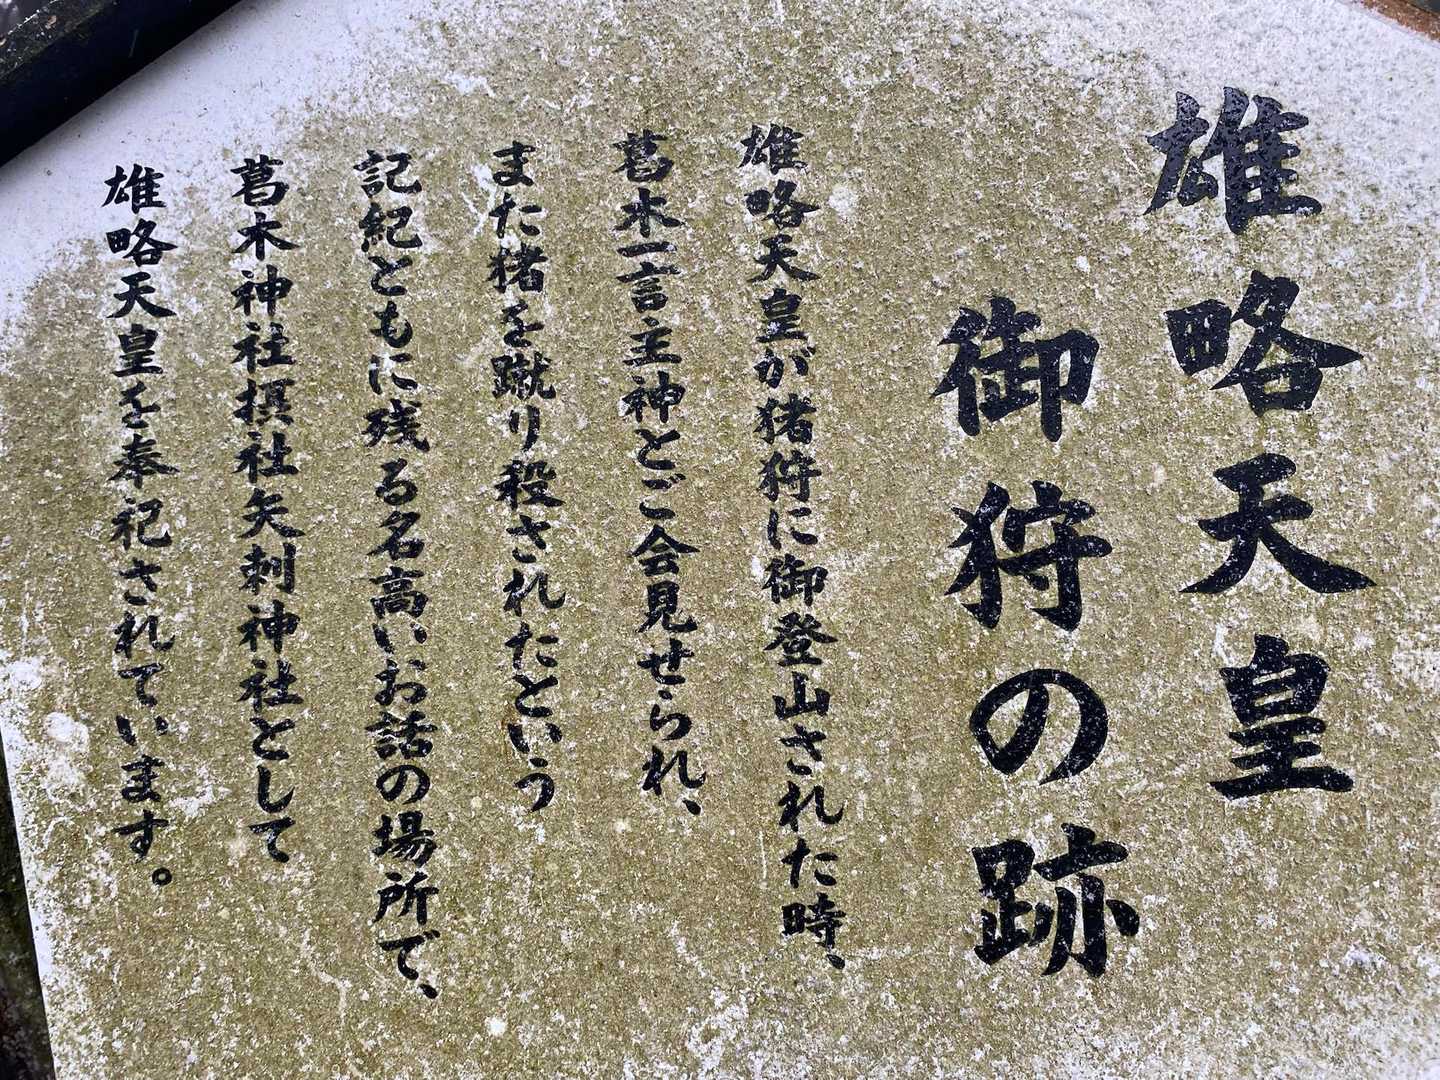 雄略天皇
御狩の跡
雄略天皇が猪狩に御登山された時、
葛木一言主神とご会見せられ、
また猪を蹴り殺されたという
記紀ともに残る名高いお話の場所で、
葛木神社摂社矢刺神社として
雄略天皇を奉祀されています。